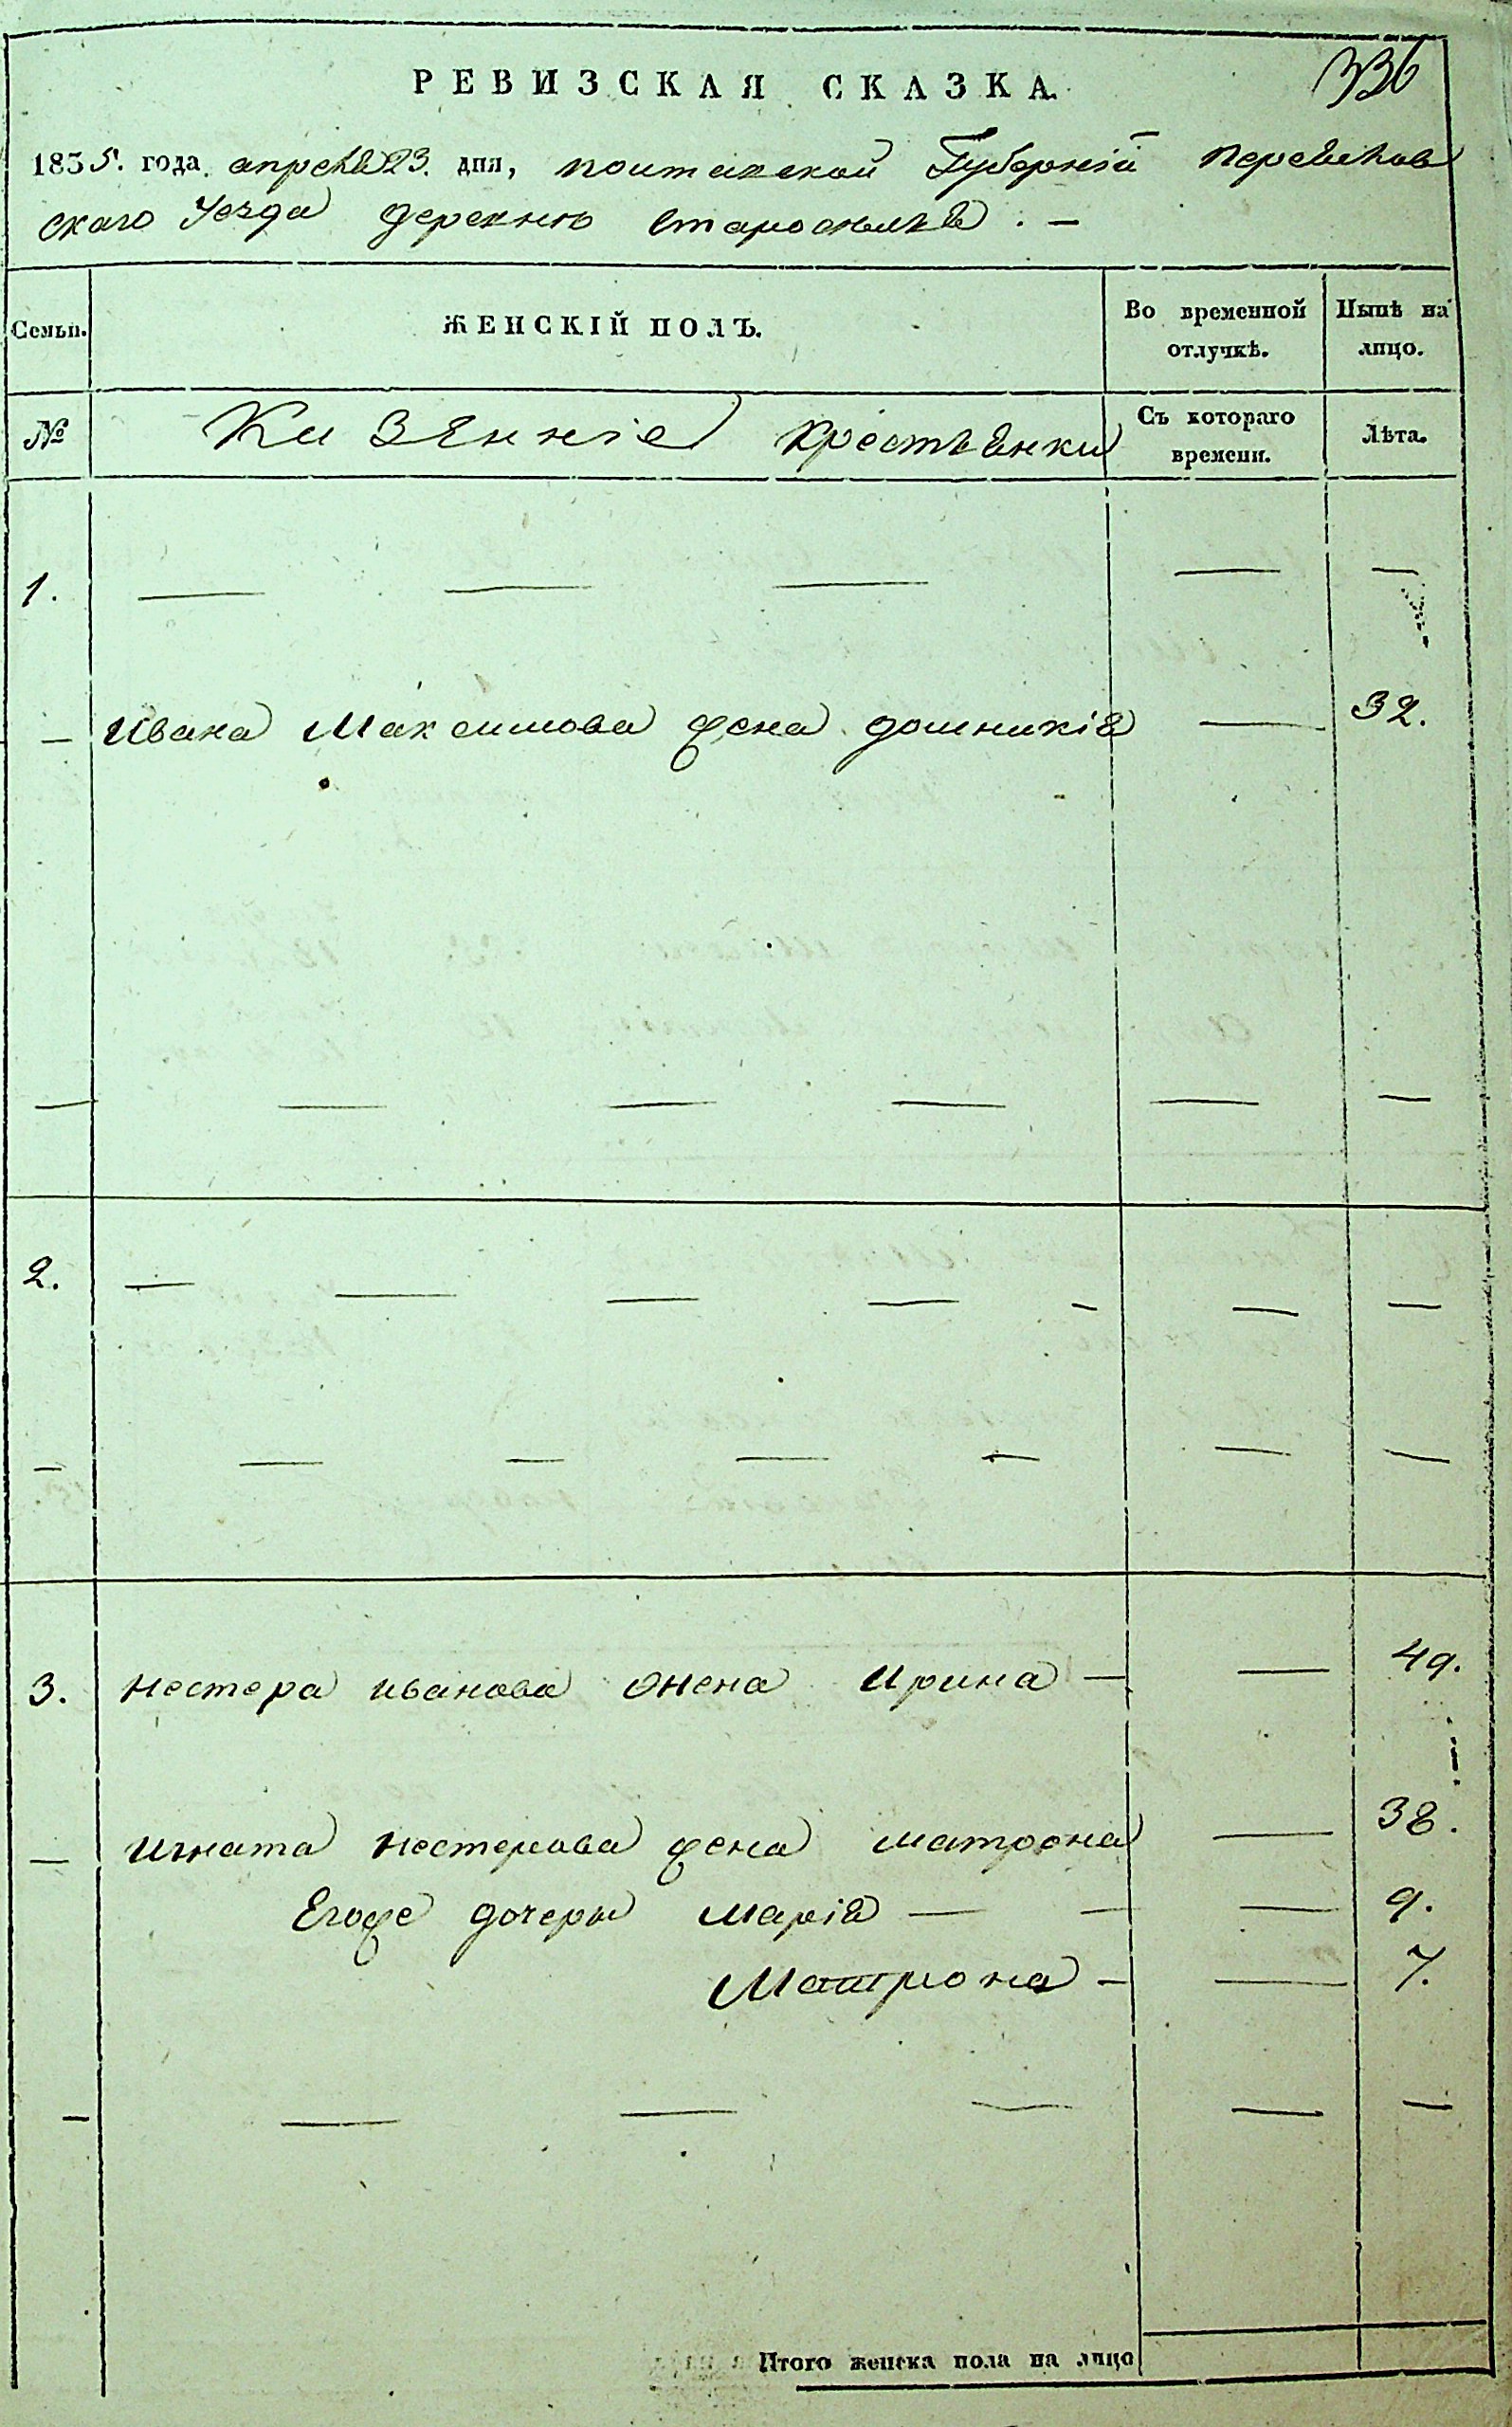 РЕВИЗСКАЯ СКАЗКА.
336
1835. года. апреля 23. дня, полтавской Губерніи
скаго Уезда деревню
Семьи.
ЖЕНСКІЙ ПОЛЪ.
Во временной отлучкѣ.
Нынѣ на лицо.
№
крестьянки
Съ котораго времени.
Лѣта.
1.
Ивана Максимова жена домникія 32.
2.
3. Нестера иванова жена ирина 49.
игната нестерова жена матрона 38.
Егоже дочеры марія 9.
Матрона 7.
Итого женска пола на лицо